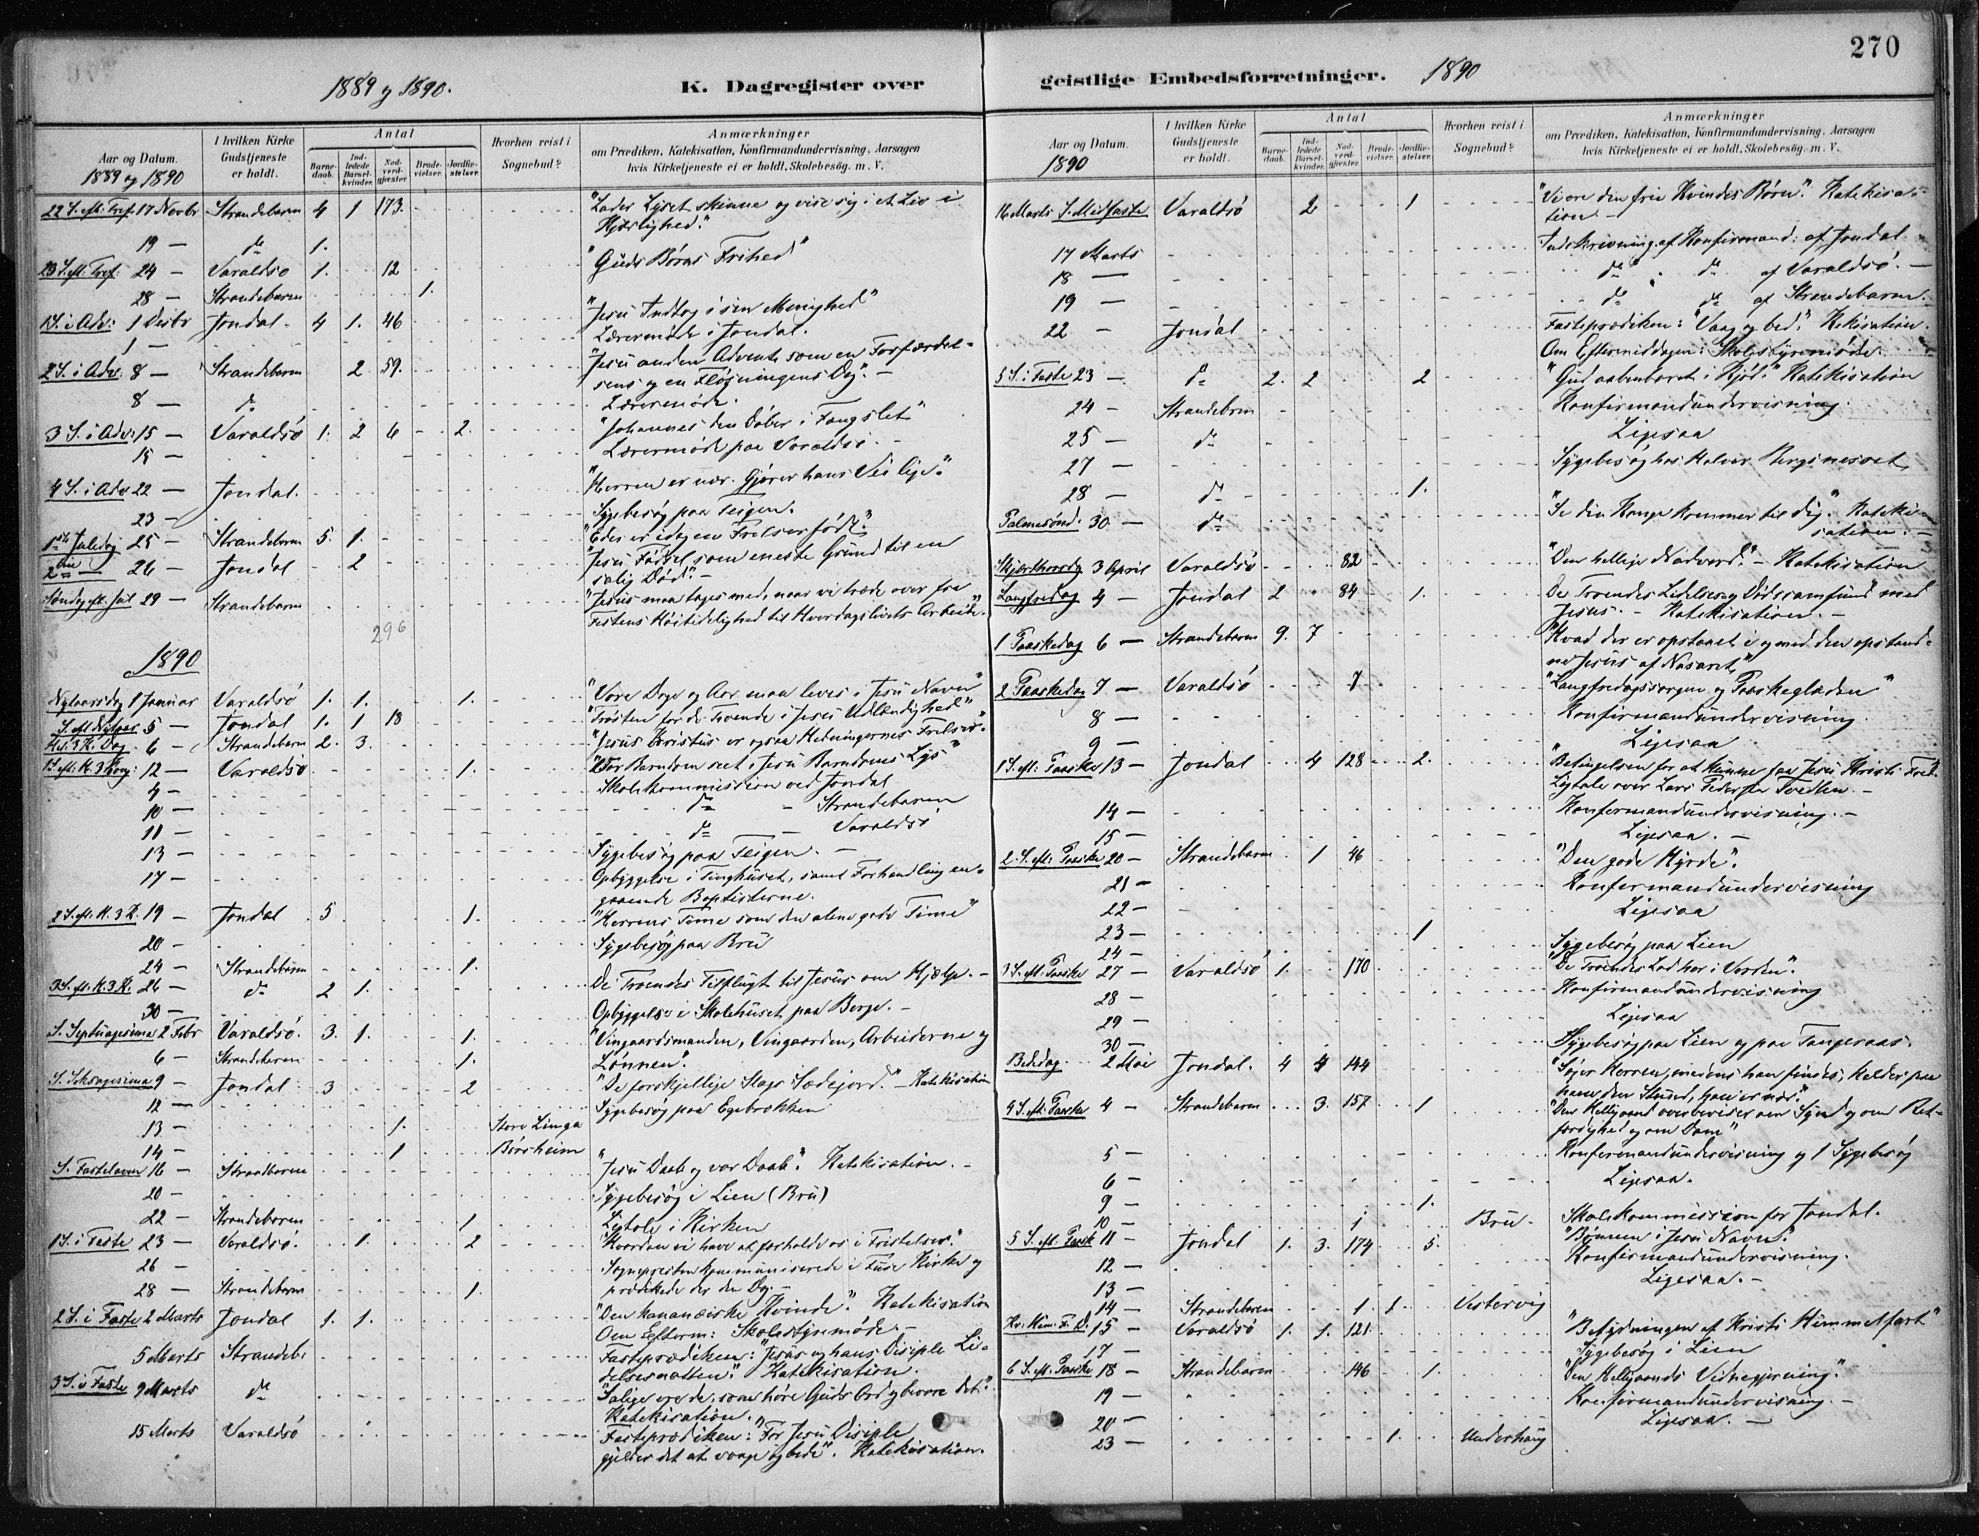 270
1889 og 1890.
K. Dagregister over
Aar og Datum.
1889 og 1890
I hvilken Kirke Gudstjeneste er holdt.
Antal
Barnedaab.
Indledede Barselkvinder.
Nadverdgjæster.
Brudevielser.
Jordfæstelser.
Hvorhen reist i Sognebud?
Anmærkninger
om Prædiken, Katekisation, Konfirmandundervisning. Aarsagen
hvis Kirketjeneste ei er holdt. Skolebesøg. m. V.
22 S. eft. Tref. 17 Novbr Strandebarm 4 1 173. "Lader Lyset skinne og vise sig i et Liv i
Kjærlighed."
19 — do 1.
23 S. eft. Tref: 24 — Varaldsø 1. 12 "Guds Børns Frihed"
28 — Strandebarm 1.
1 S. i Adv: 1 Desbr Jondal. 4 1. 46 "Jesu Indtog i sin Menighed"
1 — Lærermøde i Jondal.
2 S. i Adv: 8 — Strandebarm 2 59. "Jesu anden Advent som en Forfærdel-
sens og en Dag". —
8 — do Lærermøde.
3 S. i Adv: 15 — Varaldsø 1. 2 6 2. "Johannes den Døber i Fængslet"
15 — Lærermøde paa Varaldsø. —
4 S. i Adv 22 — Jondal. "Herren er nær. Gjører hans Vei lige."
23 — Sygebesøg paa Teigen.
1ste Juledag 25 — Strandebarm 5. 1. "Eder er idag en Frelser født."
2den — 26 — Jondal 2 "Jesu Fødsel som eneste Grund til en
salig Død". —
Søndag eft. Jul 29 — Strandebarm "Jesus maa tages med, naar vi træde over fra
Festens Høitidelighed til Hverdagslivets Arbeide".
296
1890
Nytaarsdag 1 Januar Varaldsø 1. 1. 1. "Vore Dage og Aar maa leves i Jesu Navn"
S. eft Nytaar 5 — Jondal 1. 1 18 "Trøsten for de Troende i Jesu Udlændighed"
Hel. 3 K. Dag 6 — Strandebarm 2. 3. "Jesus Kristus er ogsaa Hedningernes Frelser".
1 S. eft. H. 3 Kong: 12 — Varaldsø 1. "Vor Barndom seet i Jesu Barndoms Lys"
9 — Skolekommission ved Jondal
10 — do — Strandebarm
11 — do — Varaldsø
13 — Sygebesøg paa Teigen. —
17 — Opbyggelse i Tinghuset, samt Forhandling an-
gaaende Baptisterne.
2 S. eft. H. 3 K. 19 — Jondal 5 1. "Herrens Time som den alene gode Time"
20 — Sygebesøg paa Bru
24 — Strandebarm 1.
3 S. eft. H. 3 K. 26 — do 2 1. De Troendes Tilflugt til Jesus om Hjælp. —
30 — Opbyggelse i Skolehuset paa Berge. —
S. Septuagesima 2 Febr Varaldsø. 3. 1. 1. "Vingaardsmanden, Vingaarden, Arbeiderne og
Lønnen".
6 — Strandebarm 1.
S. Seksagesima 9 — Jondal 3 2 "De forskjellige Slags Sædejord." — Katekisation
12 — Sygebesøg paa Egebrekken
13 — 1. Store Linga
14 — 1 Børsheim
S. Fastelavn 16 — Strandbarm "Jesu Daab og vor Daab". Katekisation. —
20 — Sygebesøg i Lien (Bru)
22 — Strandebarm 1 Ligtale i Kirken
1 S. i Faste 23 — Varaldsø. 1. 2 "Hvordan vi have at forholde os i Fristelser."
26 — Sognepresten kommuniserede i Fuse Kirke og
prædikede der den Dag. —
28 — Strandebarm 1.
2 S. i Faste 2 Marts Jondal 1. 1. "Den kananæiske Kvinde." Katekisation
Om Efterm: Skolestyremøde. —
5 Marts Strandeb: Fasteprædiken: "Jesus og hans Disiple Li-
delsesnatten". Katekisation.
3 S. i Faste 9 Marts do "Salige ere de, som høre Guds Ord og bevare det."
Katekisation.
15 Marts Varaldsø Fasteprædiken: "For Jesu Disiple
gjelder det at vaage og bede". Katekisation.
geistlige Embedsforretninger. 1890
Aar og Datum.
1890
I hvilken Kirke Gudstjeneste er holdt.
Antal
Barnedaab.
Indledede Barselkvinder.
Nadverdgjæster.
Brudevielser.
Jordfæstelser.
Hvorhen reist i Sognebud?
Anmærkninger
om Prædiken, Katekisation, Konfirmandundervisning. Aarsagen
hvis Kirketjeneste ei er holdt. Skolebesøg. m. V.
16 Marts S. Midfaste Varaldsø 2 1 "Vi ere den frie Kvindes Børn". Katekisa-
tion —
17 Marts Indskrivning af Konfirmand: af Jondal.
18 — do do af Varaldsø. —
19 — do do af Strandebarm.
22 — Jondal Fasteprædiken: "Vaag og bed." Katekisation.
Om Eftermiddagen: Skolestyremøde.
5 S. i Faste 23 — do 2. 2 2 "Gud aabenbaret i Kjød." Katekisation
24 — Strandebrm Konfirmandundervisning.
25 — do Ligesaa
27 — Sygebesøg hos Halvor
28 — do 1.
Palmesønd. 30 — do "Se din Konge kommer til dig". Kateki-
sation. —
Skjærthorsdg 3 April Varaldsø 82 "Den hellige Nadverd". — Katekisation
Langfredag 4 — Jondal 2 84 1. De Troendes Lidelses og Dødssamfund med
Jesus. — Katekisation. —
1 Paaskedag 6 — Strandebarm 9. 7 "Hvad der er opstaaet i og med den opstand-
ne Jesus af Nasaret"
2 Paaskedag 7 — Varaldsø 7 "Langfredagssorgen og Paaskeglæden"
8 — Konfirmandundervisning.
9 — Ligesaa
1 S. eft. Paaske 13 — Jondal 4 128 2. "Betingelsen for at kunne faa Jesu Kristi Fred.
Ligtale over Lars Pedersen —
14 — Konfermandundervisning. —
15 — Ligesaa. —
2. S. eft. Paaske 20 — Strandebarm 1 46 "Den gode Hyrde".
21 — Konfermandundervisning
22 — Ligesaa
23 — 1
24 — Sygebesøg paa Lien
3 S. eft. Paaske 27 — Varaldsø 1. 170 "De Troendes Lod her i Verden".
28 — Konfirmandundervisning
29 — Ligesaa
30 — Sygebesøg paa Lien og paa Tangeraas.
Bededag. 2 Mai Jondal. 4 4 144 "Søger Herren, medens han findes, kalder paa
ham den Stund, han er nær".
4 S. eft. Paaske 4 — Strandebarm 3. 157 1 "Den Helligaand overbeviser om Synd og om Ret-
færdighed og om Dom"
5 — Konfermandundervisning og 1 Sygebesøg
6 — Ligesaa.
9 — 1.
10 — 1 Bru. Skolekommission for Jondal.
5 S. eft. Paask 11 — Jondal 1. 3. 174 5. "Bønnen i Jesu Navn".
12 — Konfirmandundervisning.
13 — Ligesaa. —
14 — Strandebarm 1 1. Vestervig
Kr. Him. F. D. 15 — Varaldsø 1. 1. 121. "Betydningen af Kristi Himmelfart"
17 — Sygebesøg i Lien
6 S. eft. Paaske 18 — Strandebarm 146 1. "Den Helligaands Vidnegjerning."
19 — Konfirmandundervisning. —
20 — Ligesaa. —
23 — 1. Underhaug